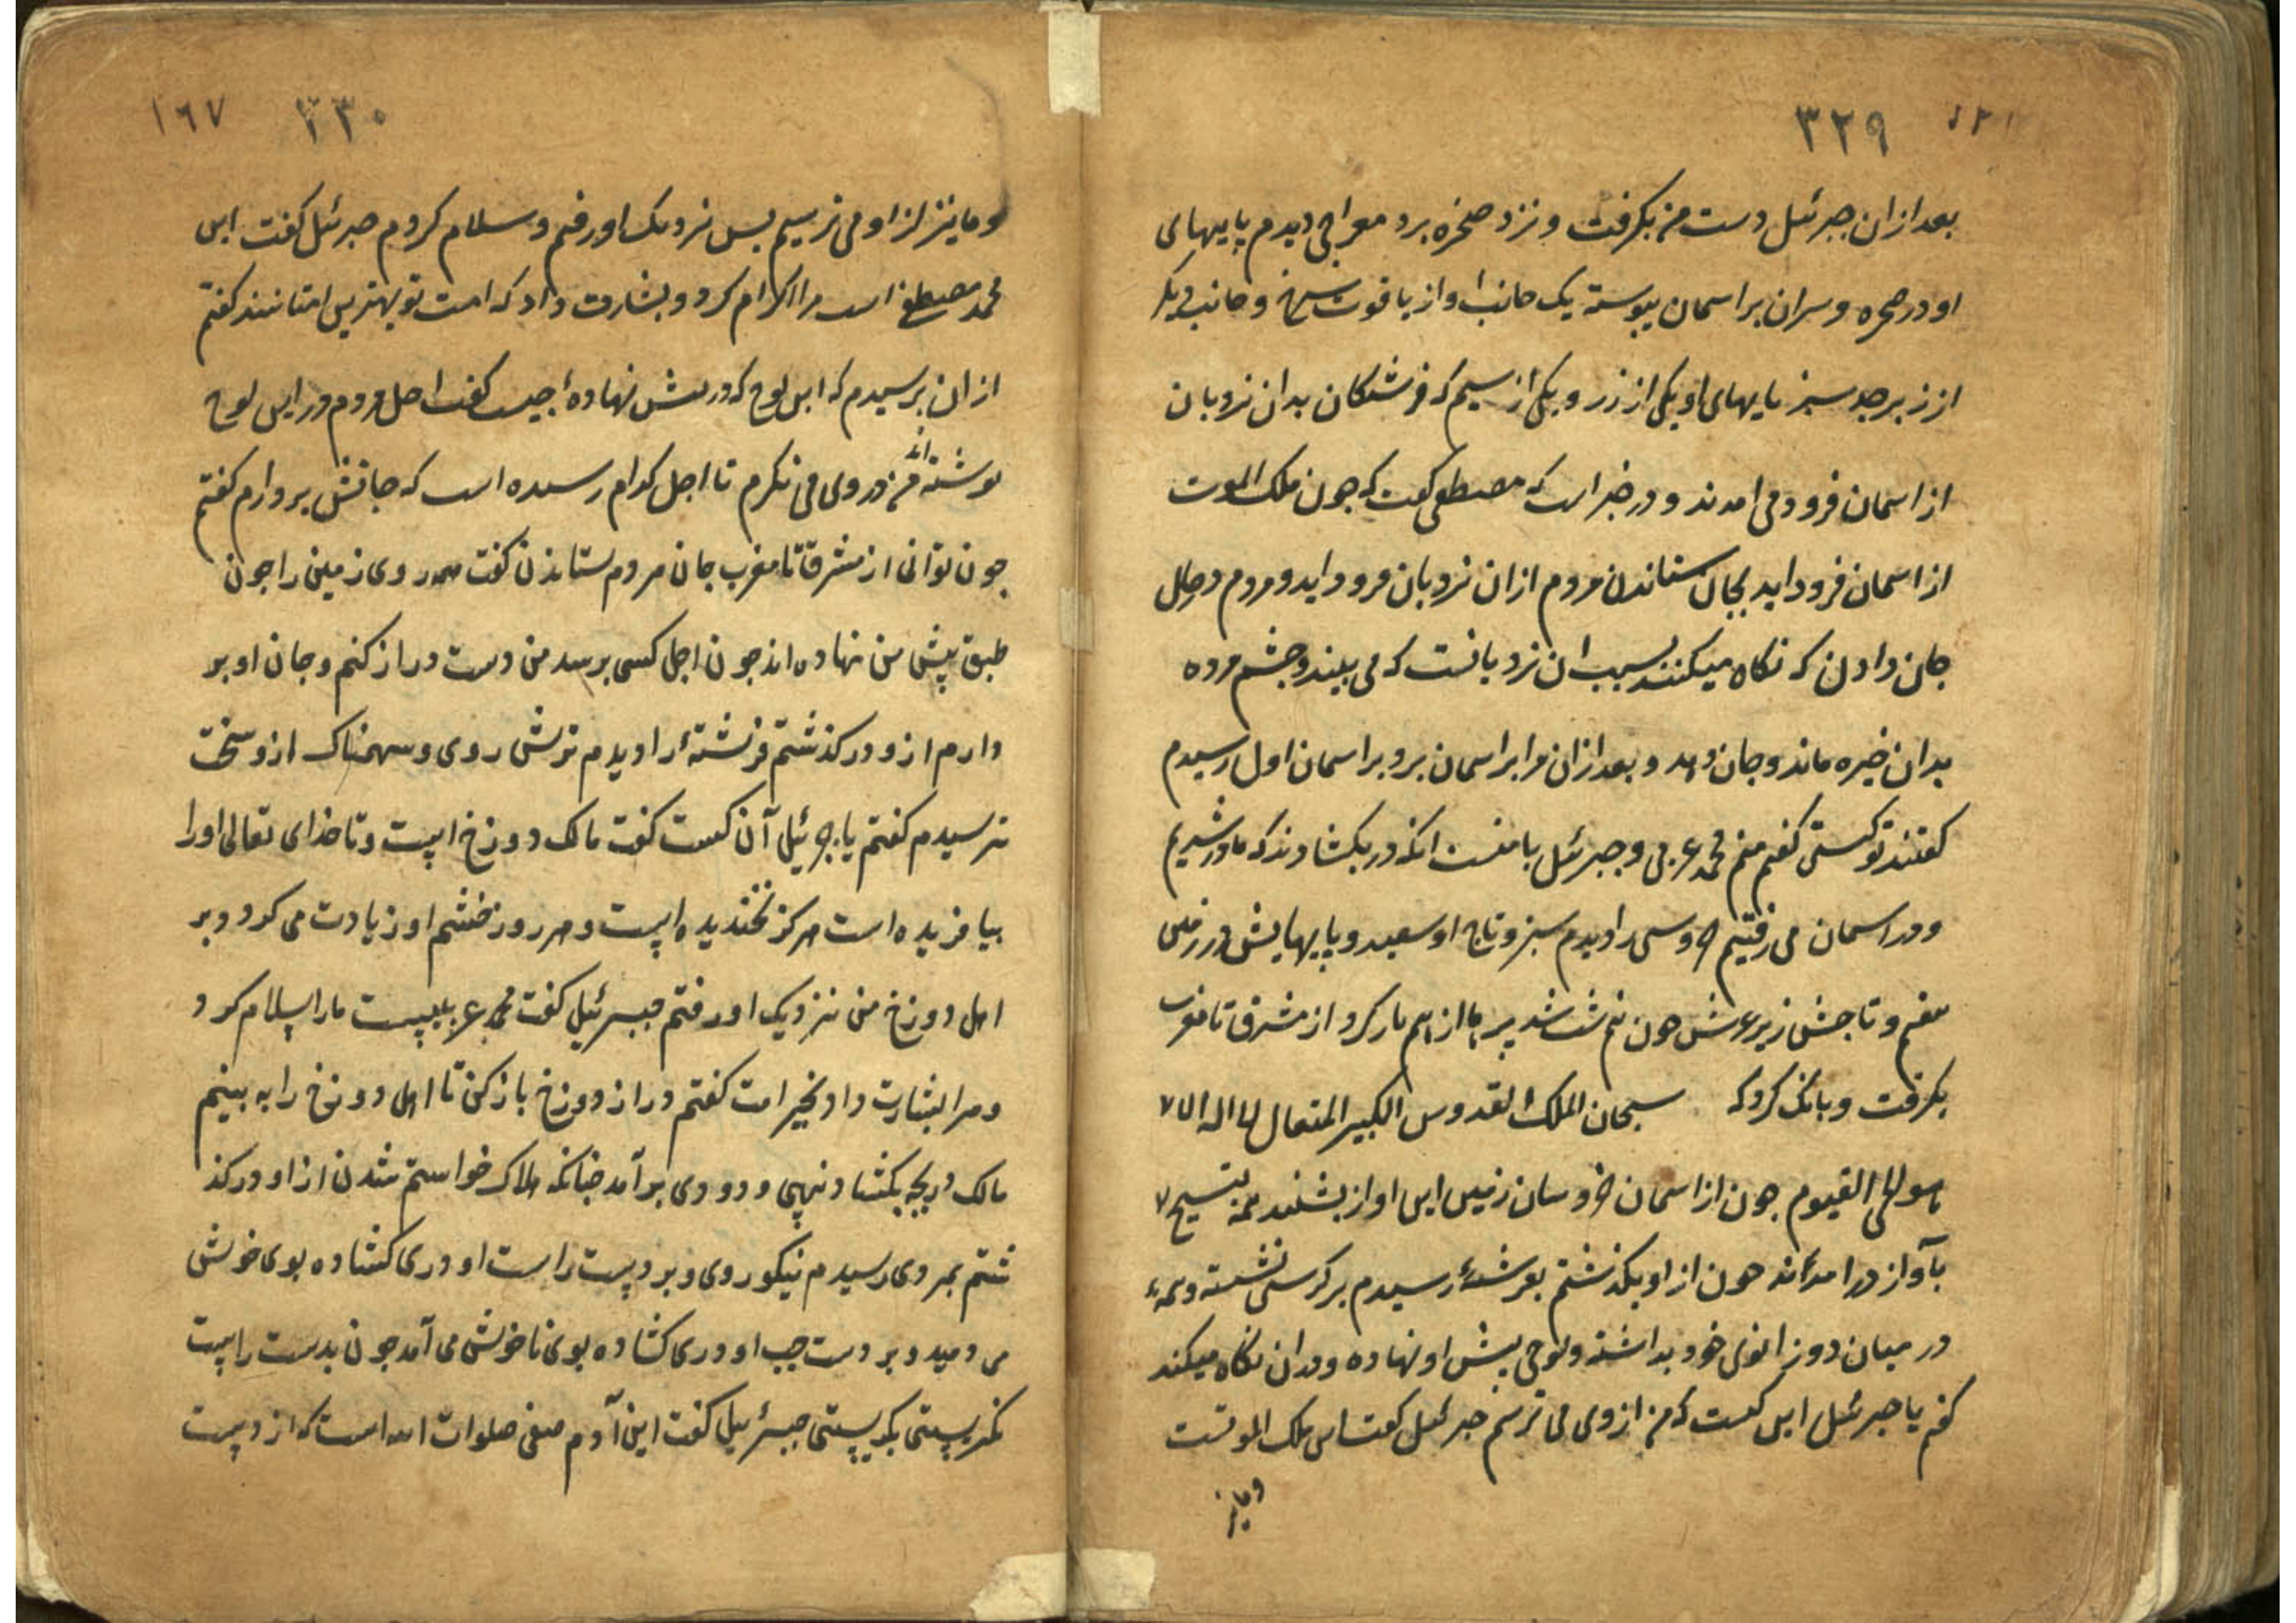 ٣٢٩
بعد از ان جبرئیل دست من بکرفت و نزد صخره برد معراجی دیدم پایهای
او در صخره و سران بر اسمان پیوسته یک جانب او از یاقوت سرخ و جانب دیکر
از زبرجد سبز پایهای او یکی از زر و یکی از سیم که فرشتکان بدان نردبان
از اسمان فرود می امدند و در خبر است که مصطفی کفت که جون ملک الموت
از اسمان فرود اید بجان ستاندن مردم ازان نردبان فرود اید و مردم در حال
جان دادن که نکاه میکنند بسبب ان نردبانست که می بینند و جشم مرده
بدان خیره ماند و جان دهد و بعد ازان مرا بر اسمان برد بر اسمان اول رسیدم
کفتند تو کیستی کفتم منم محمد عربی و جبرئیل با منست انکه در بکشادند که ما در شدیم
و در اسمان می رفتیم خروسی را دیدم سبز و تاج او سفید و پایهایش در زمین
هفتم و تاجش زیر عرش جون نیم شب شد پرها از هم باز کرد از مشرق تا مغرب
بکرفت و بانک کرد که سبحان الملک القدوس الکبیر المتعال لا اله الا
هو الحی القیوم جون از اسمان خروسان زمین این اواز بشنیدند همه بتسبیح
بآواز در امدند جون از او بکذشتم بفرشتهٔ رسیدم بر کرسی نشسته و همه
در میان دو زانوی خود بداشته و لوحی پیش او نهاده و در ان نکاه میکند
کفتم یا جبرئیل این کیست که من از وی می ترسم جبرئیل کفت این ملک الموتست
و ما نیز
٣٣٠ ١٦٧
و ما نیز از او می ترسیم پس نزدیک او رفتم و سلام کردم جبرئیل کفت این
محمد مصطفی است مرا اکرام کرد و بشارت داد که امت تو بهترین امتانند کفتم
ازان پرسیدم که این لوح که در پیش نهادهٔ جیست کفت اجل مردم در این لوح
نوشته اند من در وی می نکرم تا اجل کدام رسیده است که جانش بردارم کفتم
جون توانی از مشرق تا مغرب جان مردم ستاندن کفت همه روی زمین را جون
طبق پیش من نهاده اند جون اجل کسی برسد من دست دراز کنم و جان او بر
دارم ازو در کذشتم فرشتهٔ را دیدم ترش روی و سهمناک ازو سخت
ترسیدم کفتم یا جبرئیل آن کیست کفت مالک دوزخ است و تا خدای تعالی او را
بیافریده است هرکز نخندیده است و هر روز خشم او زیادت می کردد بر
اهل دوزخ من نزدیک او رفتم جبرئیل کفت محمد عربیست ما را سلام کرد
و مرا بشارت داد بخیر امت کفتم در از دوزخ باز کن تا اهل دوزخ را به بینم
مالک دریجه بکشاد نهیبی و دودی بر آمد جنانکه هلاک خواستم شدن از او در کذ
شتم بمردی رسیدم نیکو روی و بر دست راست او دری کشاده بوی خوش
می دمید و بر دست جب او دری کشاده بوی ناخوش می آمد جون بدست راست
نکریستی بکریستی جبرئیل کفت این آدم صفی صلوات الله است که از دست